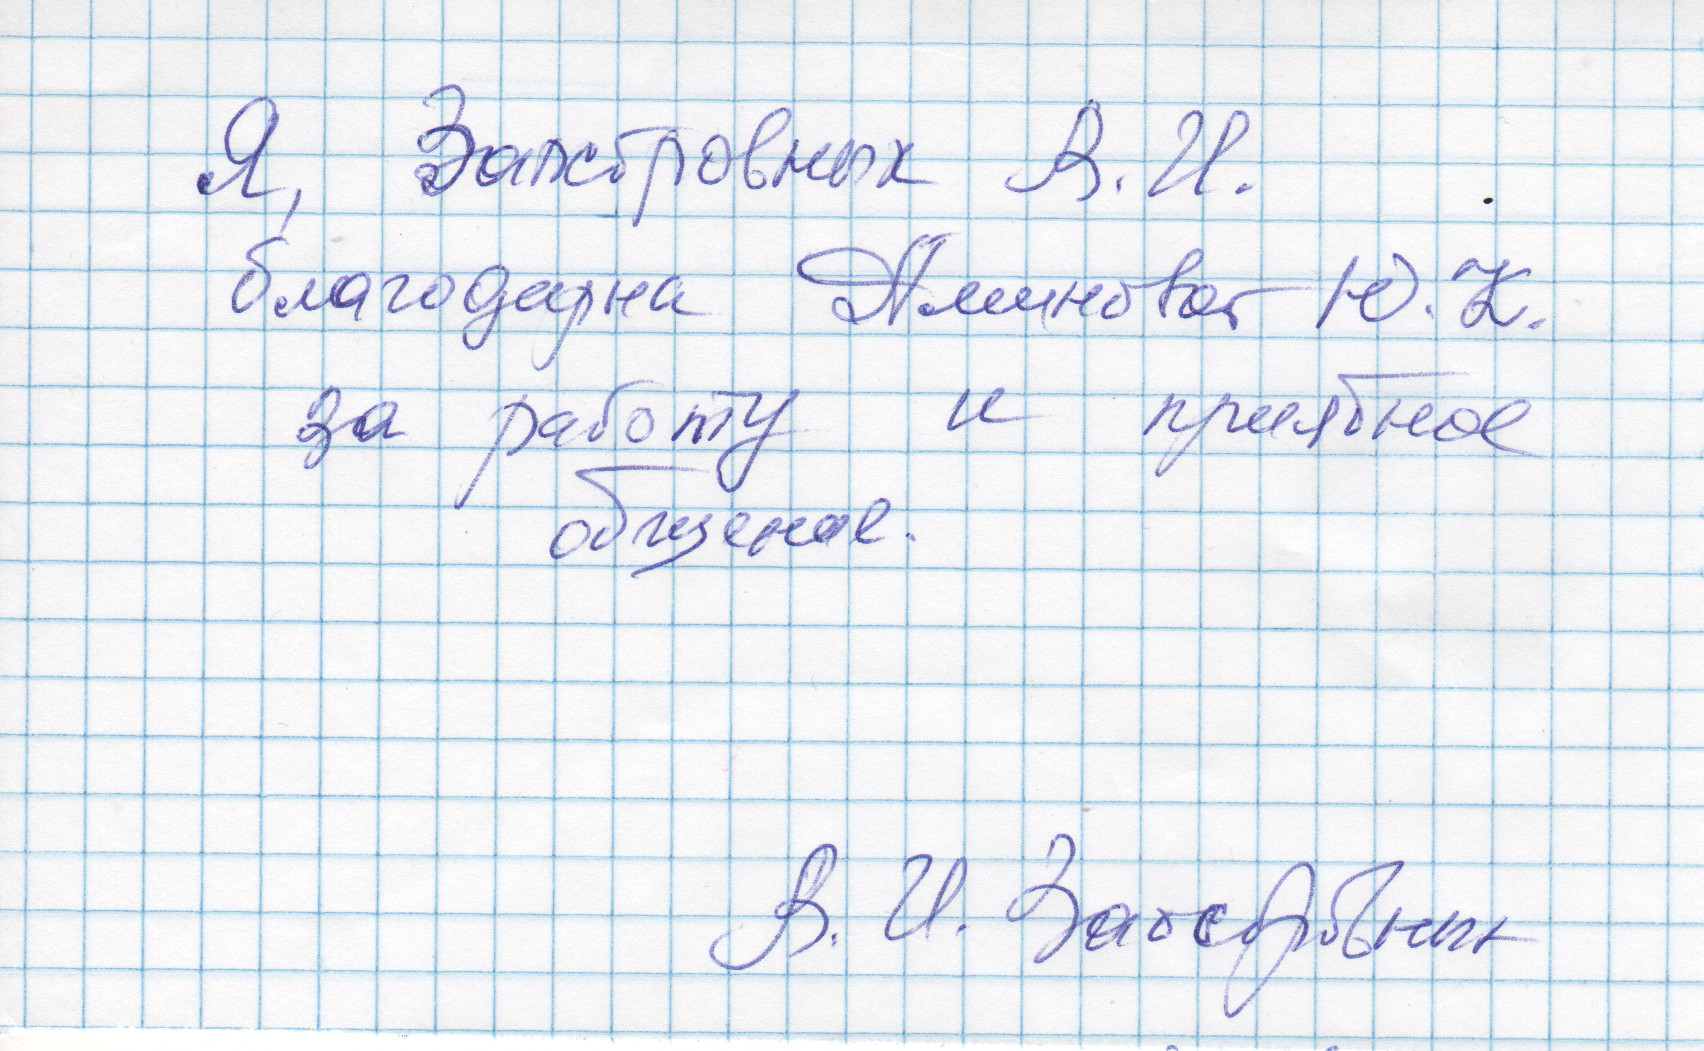 Я, Заостровных В.И.
благодарна Аминовой Ю.К.
за работу и приятное
общение.
В.И. Заостровных